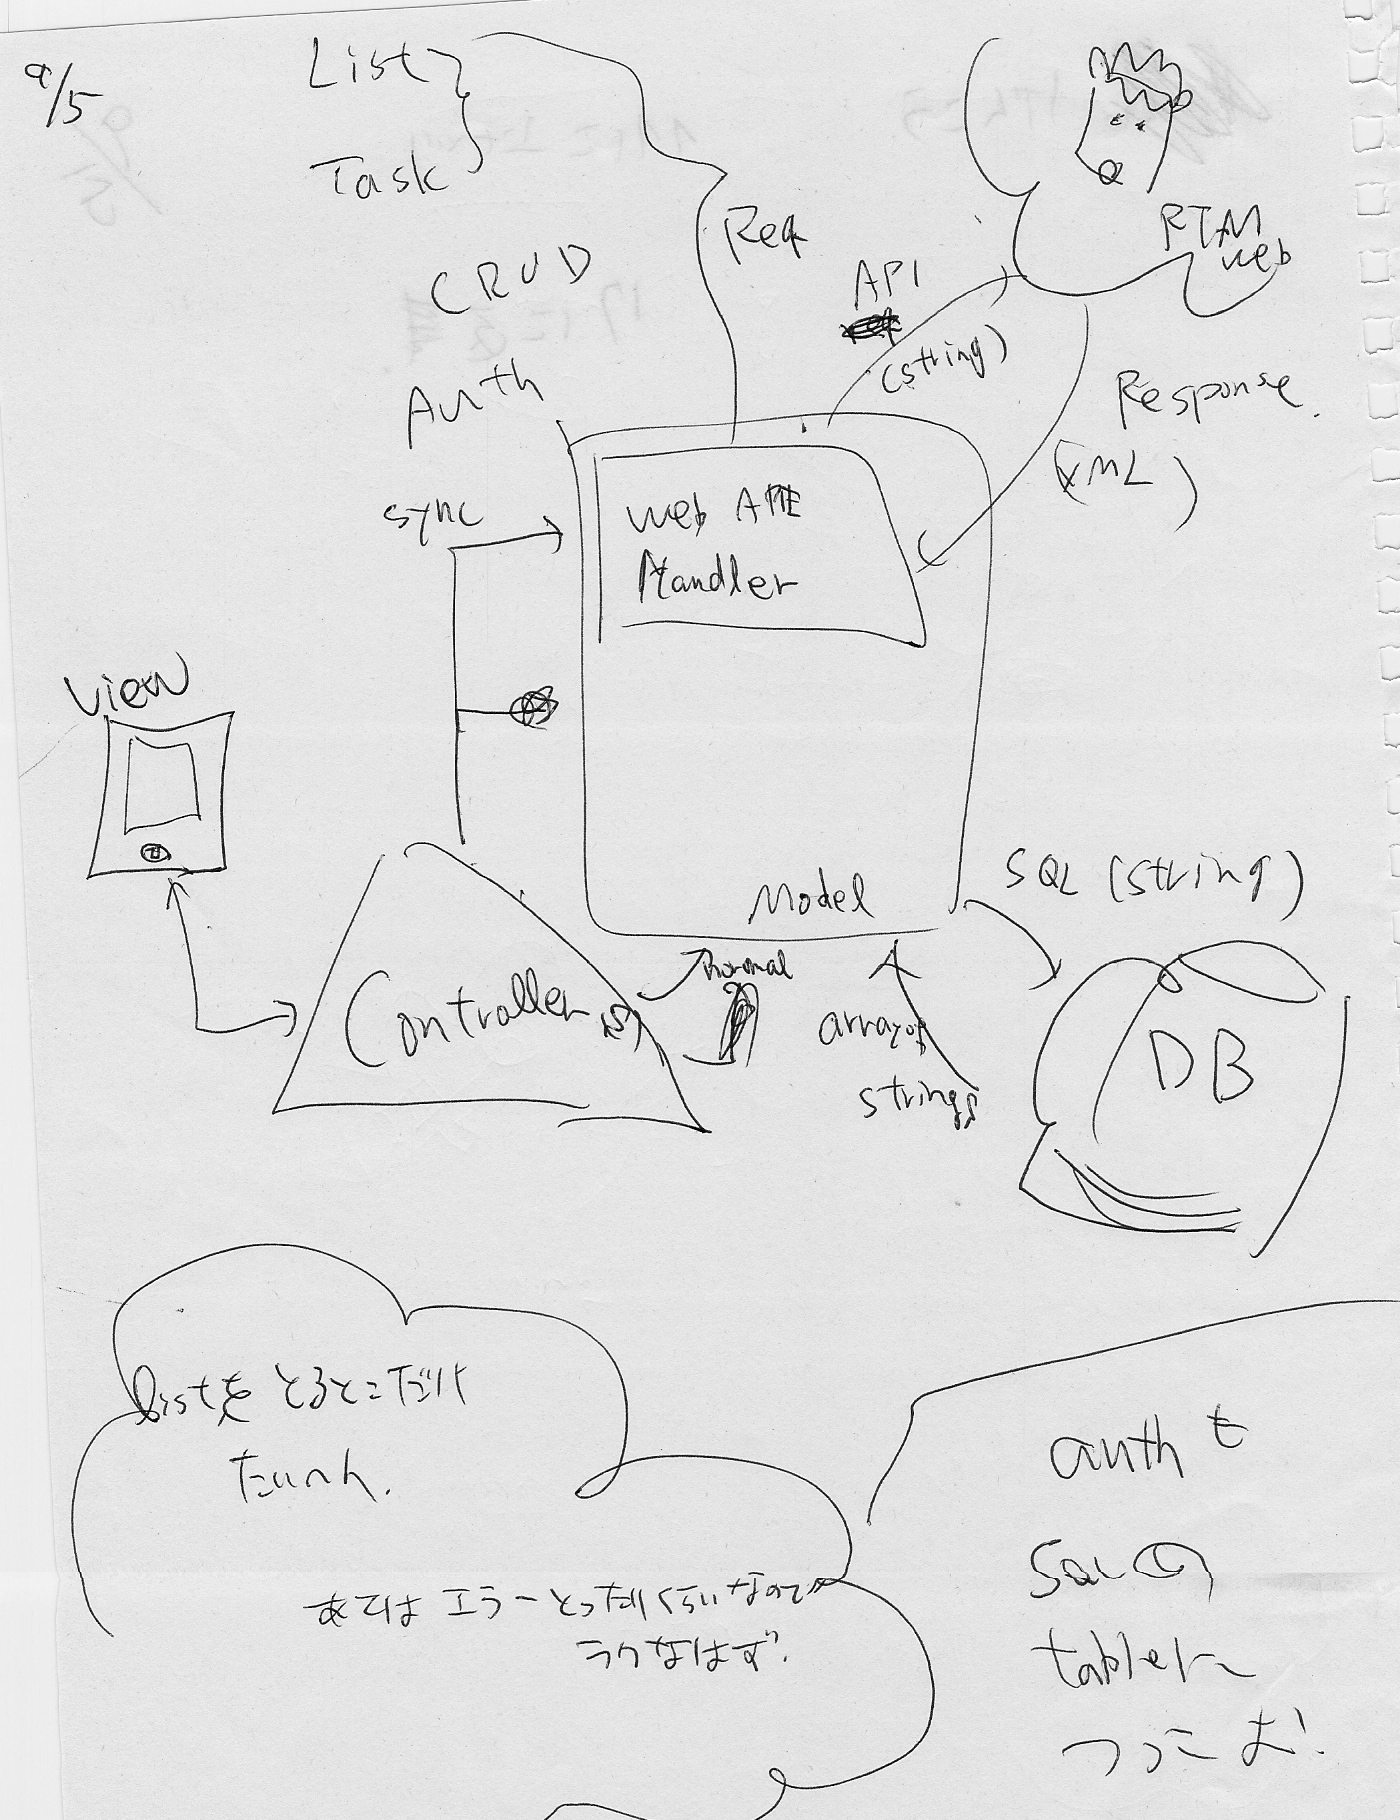 9/5
List
Task
CRUD
Req
Auth
API
(string)
RTM
web
Response.
(XML)
sync
Web API
Handler
View
Model
SQL (string)
Controller(s)
normal
array of
strings
DB
listをとるとこだけ
たいへん.
あとはエラーとったりくらいなので
ラクなはず.
authも
SQLの
tableに
つっこむ!